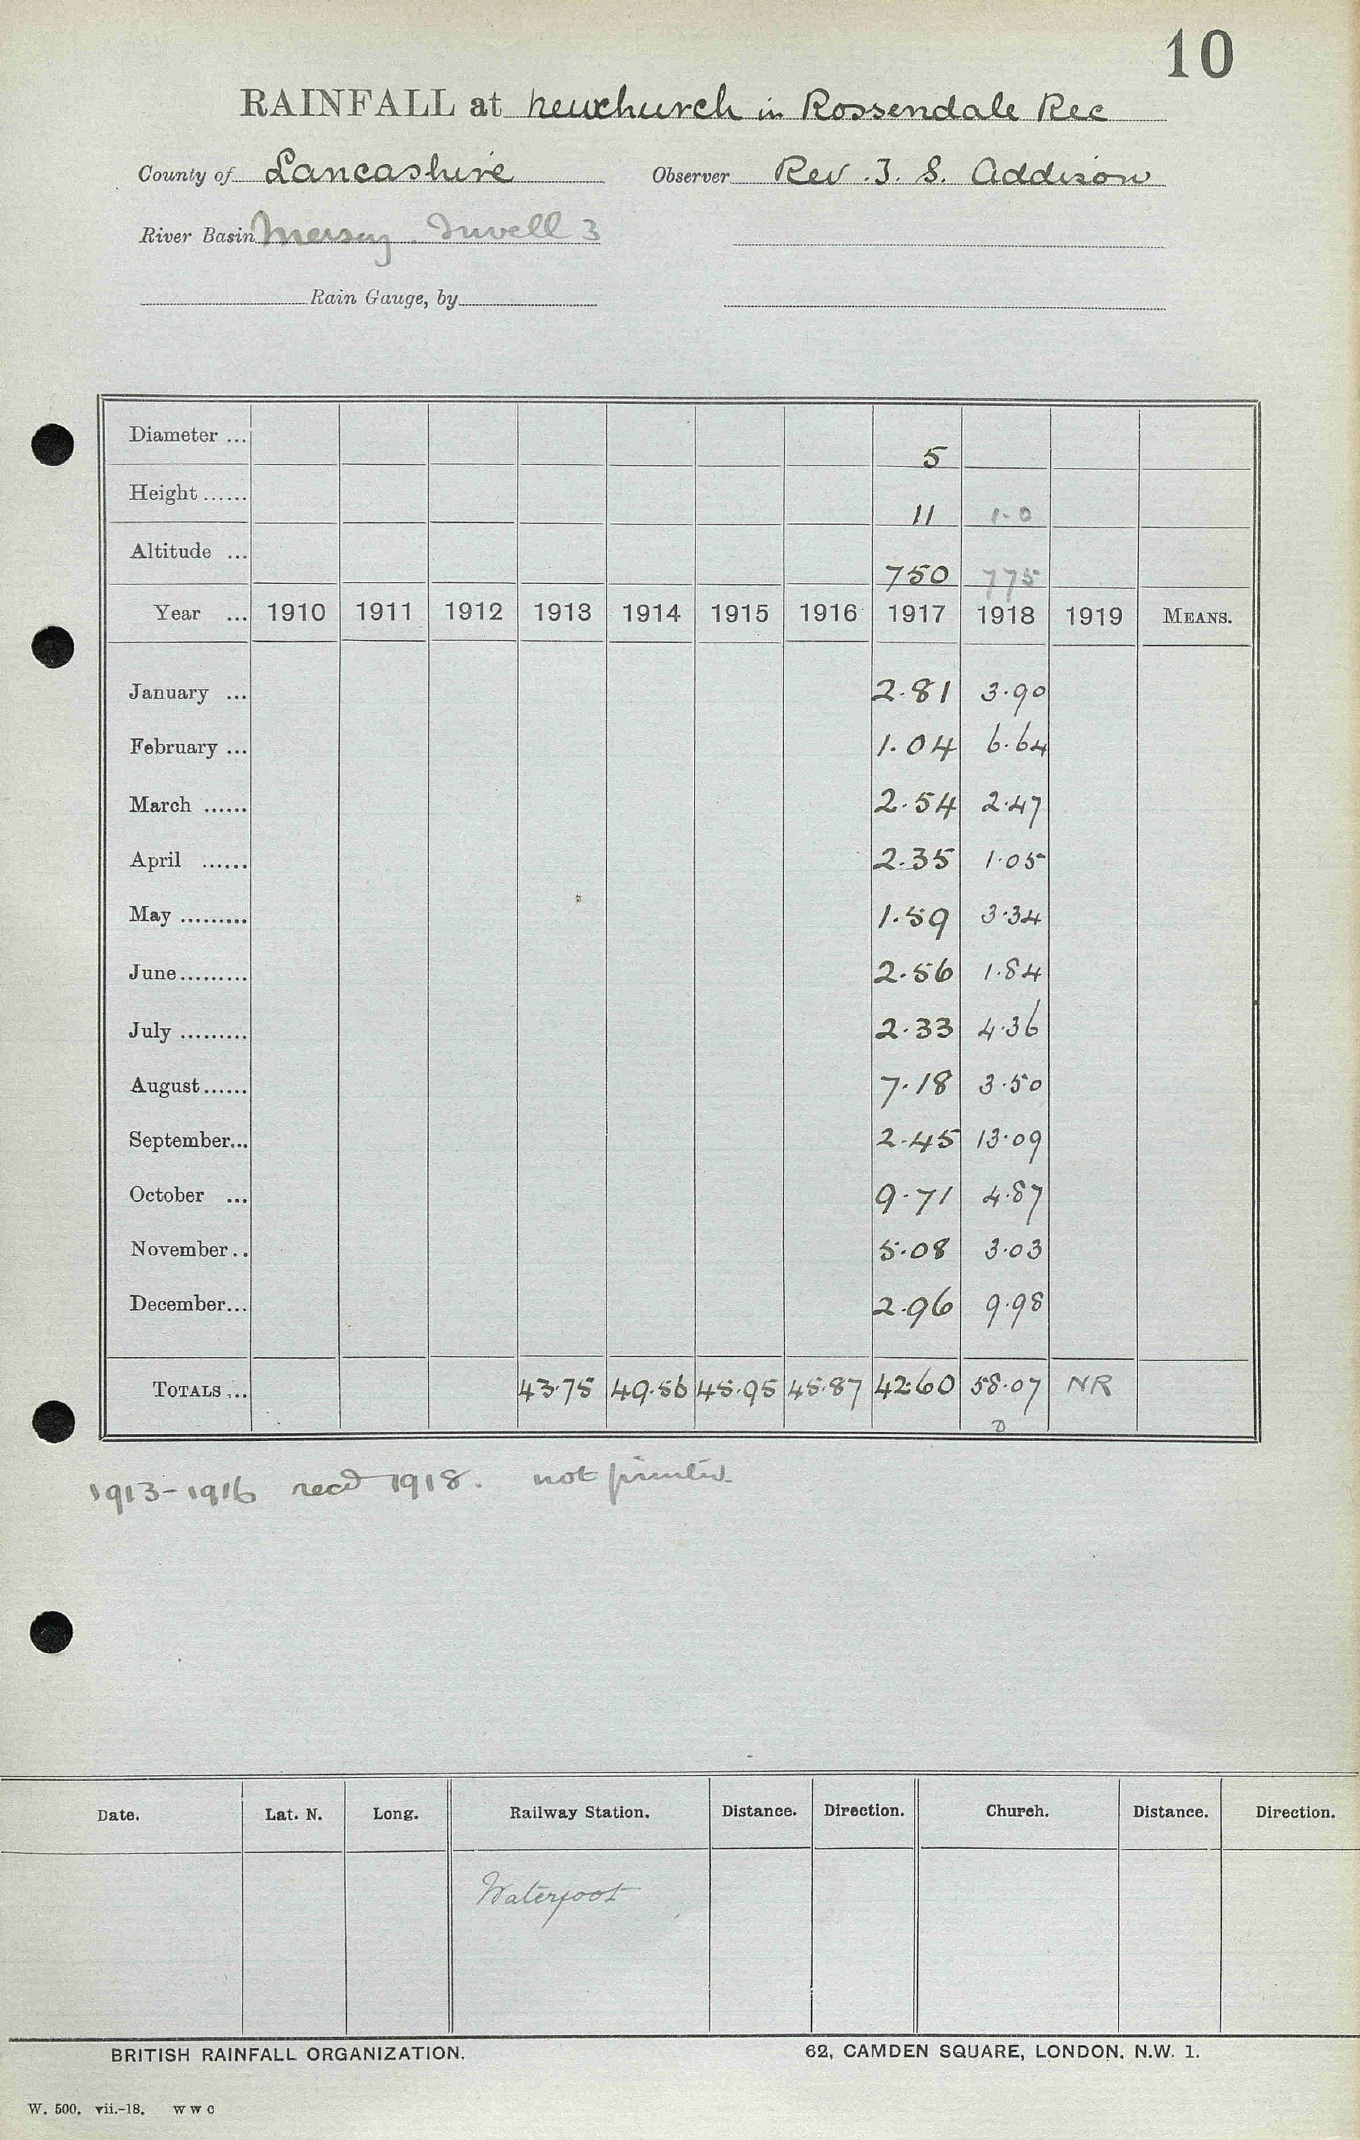 10
RAINFALL at Newchurch in Rossendale Rec
County of Lancashire Observer Rev. J. S. Addison
River Basin Mersey. Irwell 3
Rain Gauge, by
Diameter ... 5
Height ...... 11 1-0
Altitude ... 750 775
Year ... 1910 1911 1912 1913 1914 1915 1916 1917 1918 1919 MEANS.
January ... 2.81 3.90
February ... 1.04 6.64
March ...... 2.54 2.47
April ...... 2.35 1.05
May ......... 1.59 3.34
June......... 2.56 1.84
July ......... 2.33 4.36
August...... 7.18 3.50
September... 2.45 13.09
October ... 9.71 4.87
November.. 5.08 3.03
December... 2.96 9.98
TOTALS ... 43.75 49.56 45.95 45.87 42.60 58.07 NR
1913-1916 recd 1918. not printed.
Date. Lat. N. Long. Railway Station. Distance. Direction. Church. Distance. Direction.
Waterfoot
BRITISH RAINFALL ORGANIZATION. 62, CAMDEN SQUARE, LONDON, N.W. 1.
W. 500. vii.-18. W W C